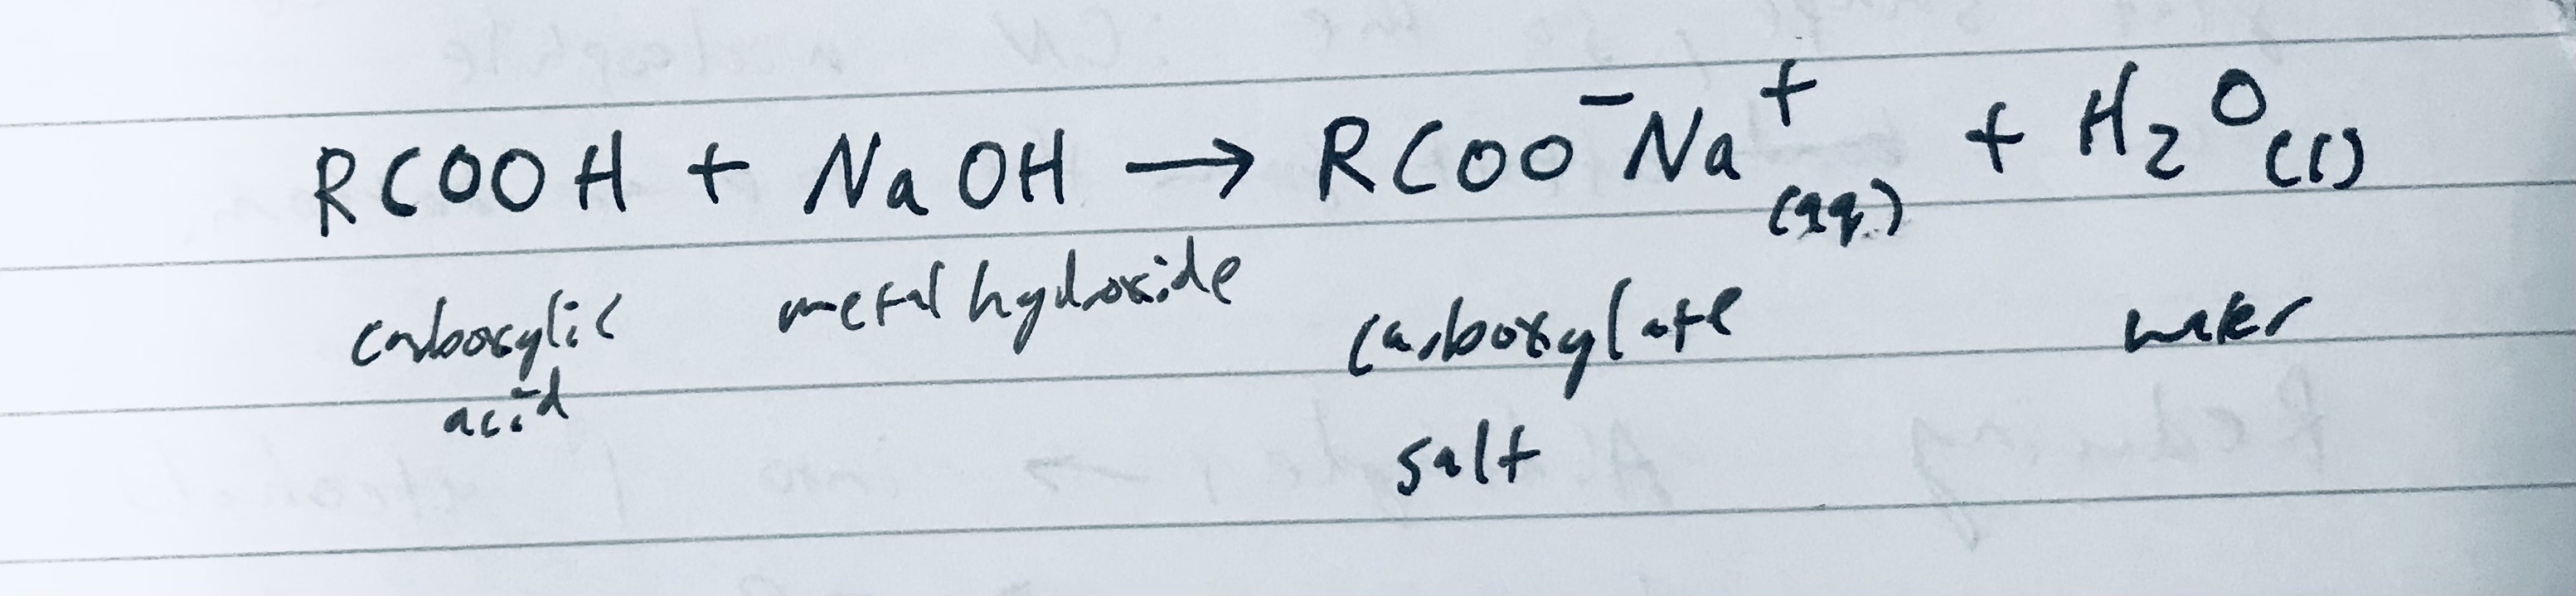 RCOOH + NaOH → RCOO⁻Na⁺(aq) + H₂O(l)
carboxylic metal hydroxide carboxylate water
acid salt